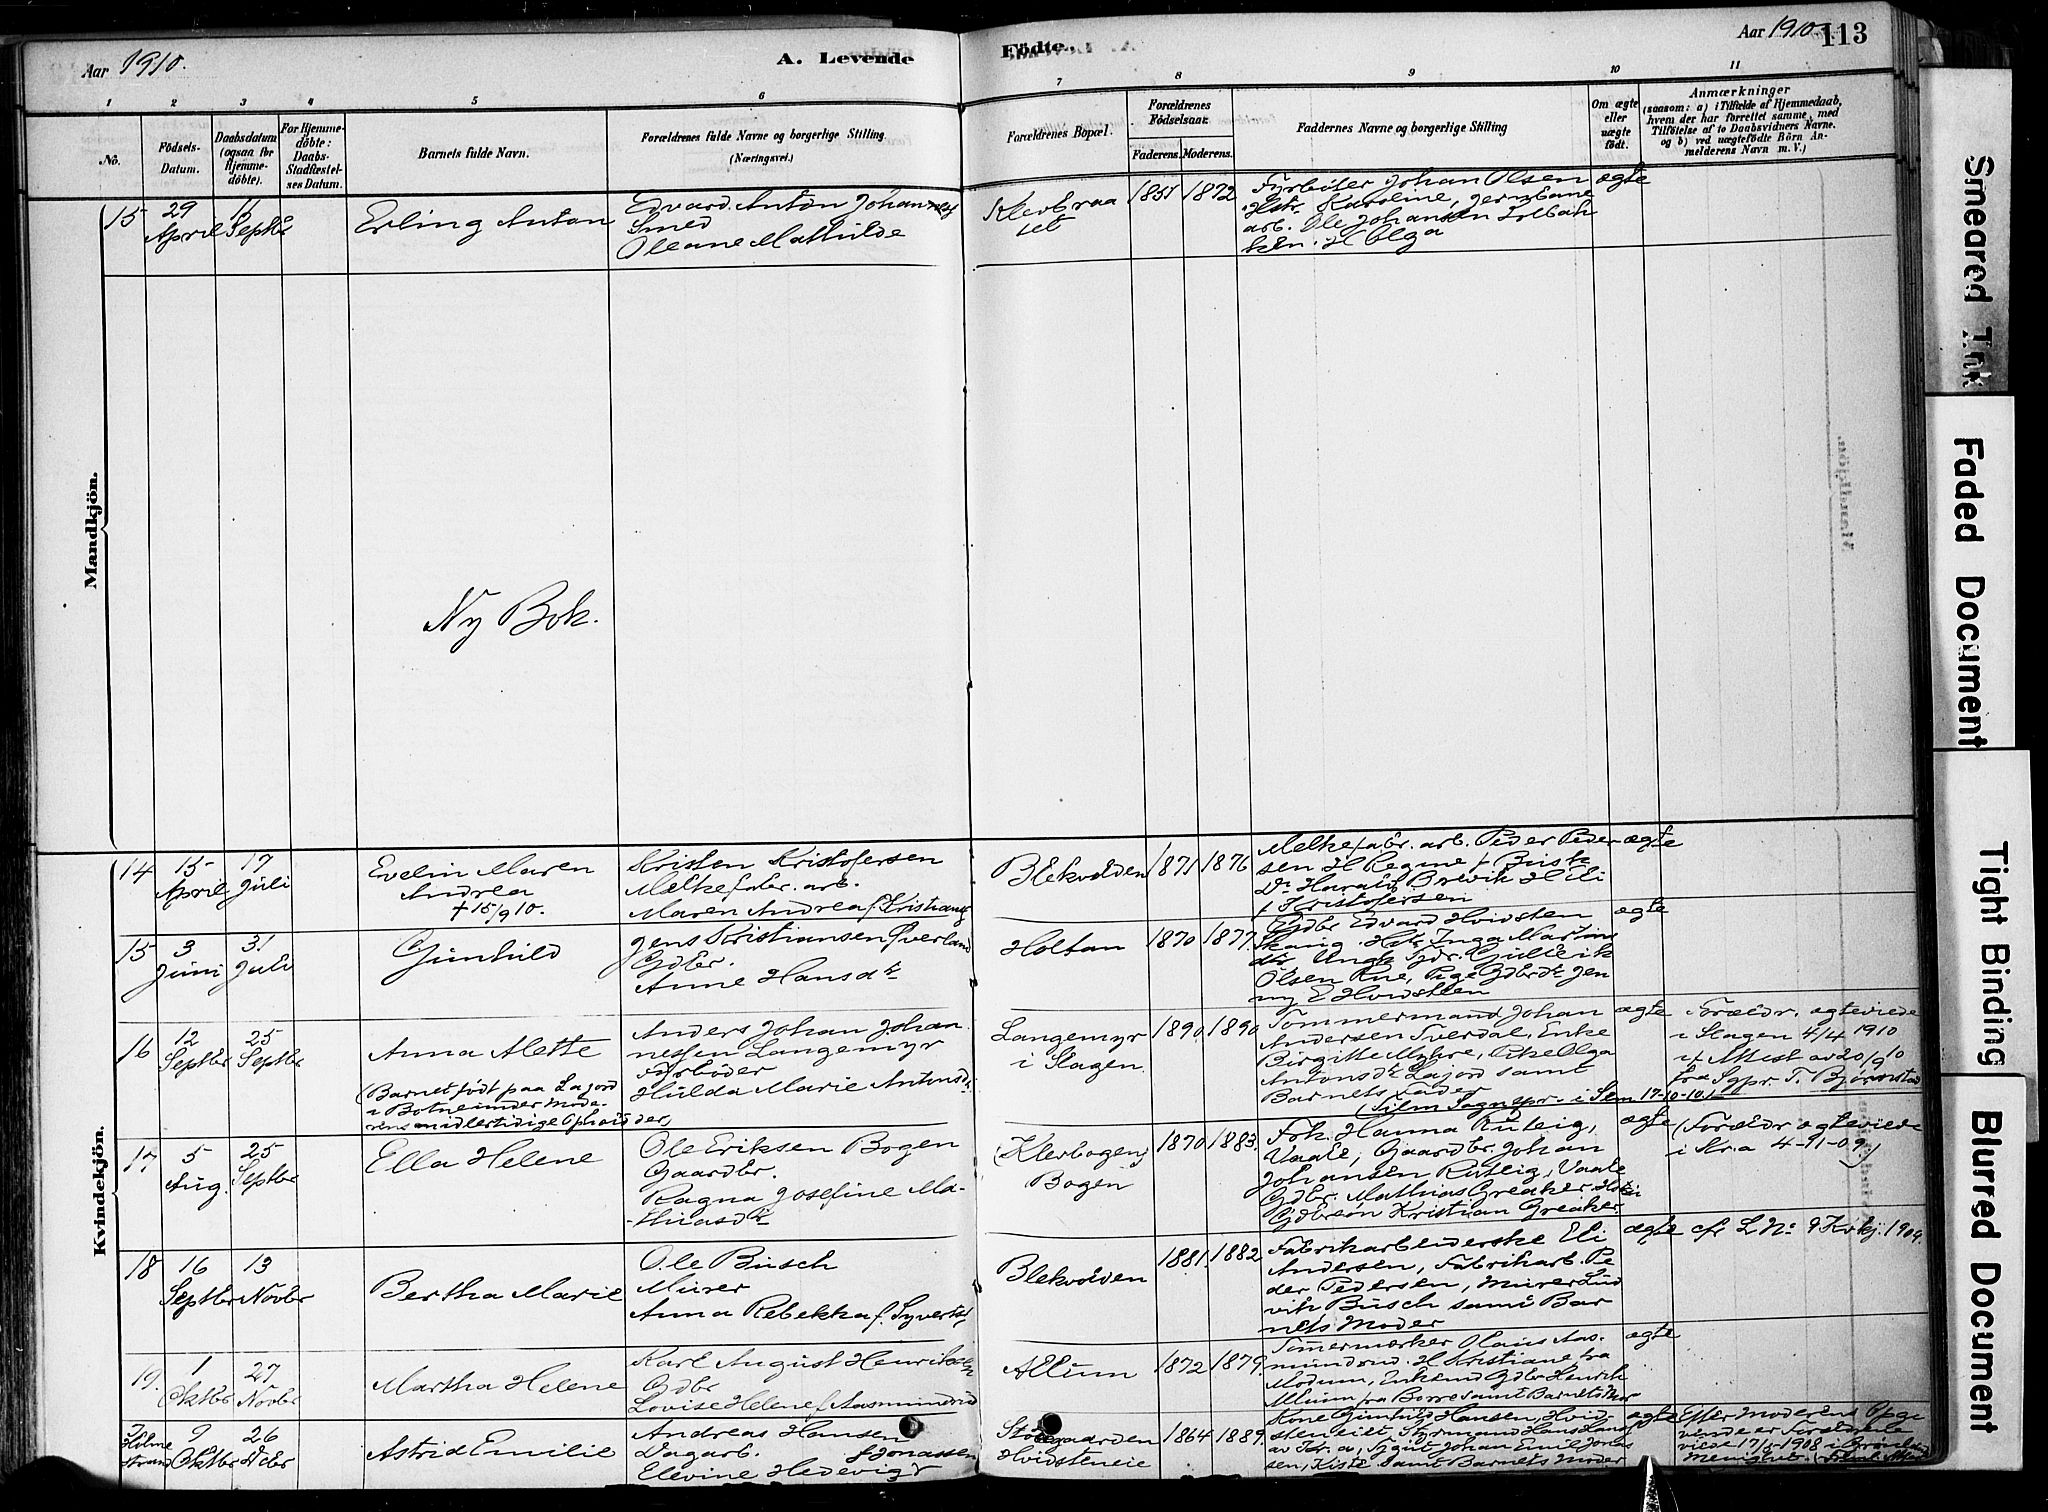 Aar 1910.
A. Levende
Födte.
Aar 1910
113
1 2 3 4 5 6 7 8 9 10 11
Nô.
Födsels-
Datum.
Daabsdatum
(ogsaa for
Hjemme-
döbte).
For Hjemme-
döbte:
Daabs-
Stadfæstel-
ses Datum.
Barnets fulde Navn.
Forældrenes fulde Navne og borgerlige Stilling.
(Næringsvei.)
Forældrenes Bopæl.
Forældrenes
Födselsaar.
Faderens. Moderens.
Faddernes Navne og borgerlige Stilling
Om ægte
eller
uægte
födt.
Anmærkninger
(saasom: a) i Tilfælde af Hjemmedaab,
hvem der har forrettet samme, med
Tilföielse af to Daabsvidners Navne.
og b) ved uægtefödte Börn An-
melderens Navn m. V.)
Mandkjön.
15
29
April
11
Septbr
Erling Anton
Edvard Anton Johannes
Smed
Oleane Mathilde
Klevbraa
tet
1851 1872
Fyrbøter Johan Olsen
Hstr. Karoline, Jernbane
arb. Ole Johansen Solbak
ken. H Olga
ægte
Ny Bok.
Kvindekjön.
14
15
April
17
Juli
Evelin Maren
Andrea
+ 15/9 10.
Kristen Kristofersen
Melkefabr. arb.
Maren Andrea f. Kristians
Blekvolden
1871 1876
Melkefabr. arb. Peder Peder
sen H Regine f Busk
Do Harald Brevik H Eli
f Kristofersen
ægte
15
3
Juni
31
Juli
Gunhild
Jens Kristiansen Øverland
Gdbr.
Anne Hansdtr
Holtan
1870 1877.
Gdbr Edvard Hvidsten
Skang. Hstr Inga Martins
dtr Ungk Gdr. Gullerik
Olsen Rue, Pige Gdbrdtr Jen
ny E Hvidsteen
ægte
16
12
Septbr
25
Septbr
Anna Alette
(Barnet født paa Lajord
i Botne under Mode-
rens midlertidige Ophold der)
Anders Johan Johan
nessen Langemyr
Fyrbøder
Hulda Marie Antonsdtr
Langemyr
i Slagen.
1890 1890
Tømmermand Johan
Andersen Sverdal, Enke
Birgitte Myhre, Pike Olga
Antonsdtr Lajord samt
Barnets Fader
(Tilm Sognepr. i Sem 17-10-10.)
ægte
Forældr. ægteviede
i Slagen 4/4 1910
if Attest av 20/9 10
fra Sgpr T. Bjørnstad
17
5
Aug.
25
Septbr
Ella Helene
Ole Eriksen Bogen
Gaardbr.
Ragna Josefine Ma-
thiasdtr
(Klevbogen)
Bogen
1870 1883.
Frk. Hanna Rutlig,
Vaale, Gaardbr. Johan
Johansen Rutlig, Vaale
Gdbr. Mathias Greaker
Gdbrsøn Kristian Greaker.
ægte
(Forældr ægteviede
i Kr.a 4-11-09)
18
16
Septbr
13
Novbr
Bertha Marie
Ole Busch
Murer
Anna Rebekka f. Syverts
Blekvolden
1881. 1882.
Fabrikarbeiderske Eli
Andersen, Fabrikarb. Pe
der Pedersen, Murer Lud
vik Busch samt Bar
nets Moder
ægte
cf L No 9 Kvkj. 1909.
19.
1
Oktbr
27
Novbr
Martha Helene
Karl August Henriksen
Gdbr
Lovise Helene f Aasmundrud
Allum
1872 1879.
Tømmermerker Olaus Aas-
mundrud. H Kristiane fra
Modum, Enkemd Gdbr Henrik
Allum fra Borre samt Barnets Mor
ægte
Holme
strand
9
Oktbr
26
Dcbr
Astrid Emilie
Andreas Hansen
Dagarb.
Elevine Hedevig f Jonassen
Hvidsteneie
1864 1889.
Kone Gunhild Hansen, Hvid-
steneiet, Styrmand Hans Hans
av Kr.a, Johan Emil Jonas
sen, Kiste samt Barnets Moder
ægte
Efter Moderens Opgi
vende er Forældrene
viede 17/5 1908 i
Menighet.
Smeared Ink
Faded Document
Tight Binding
Blurred Document